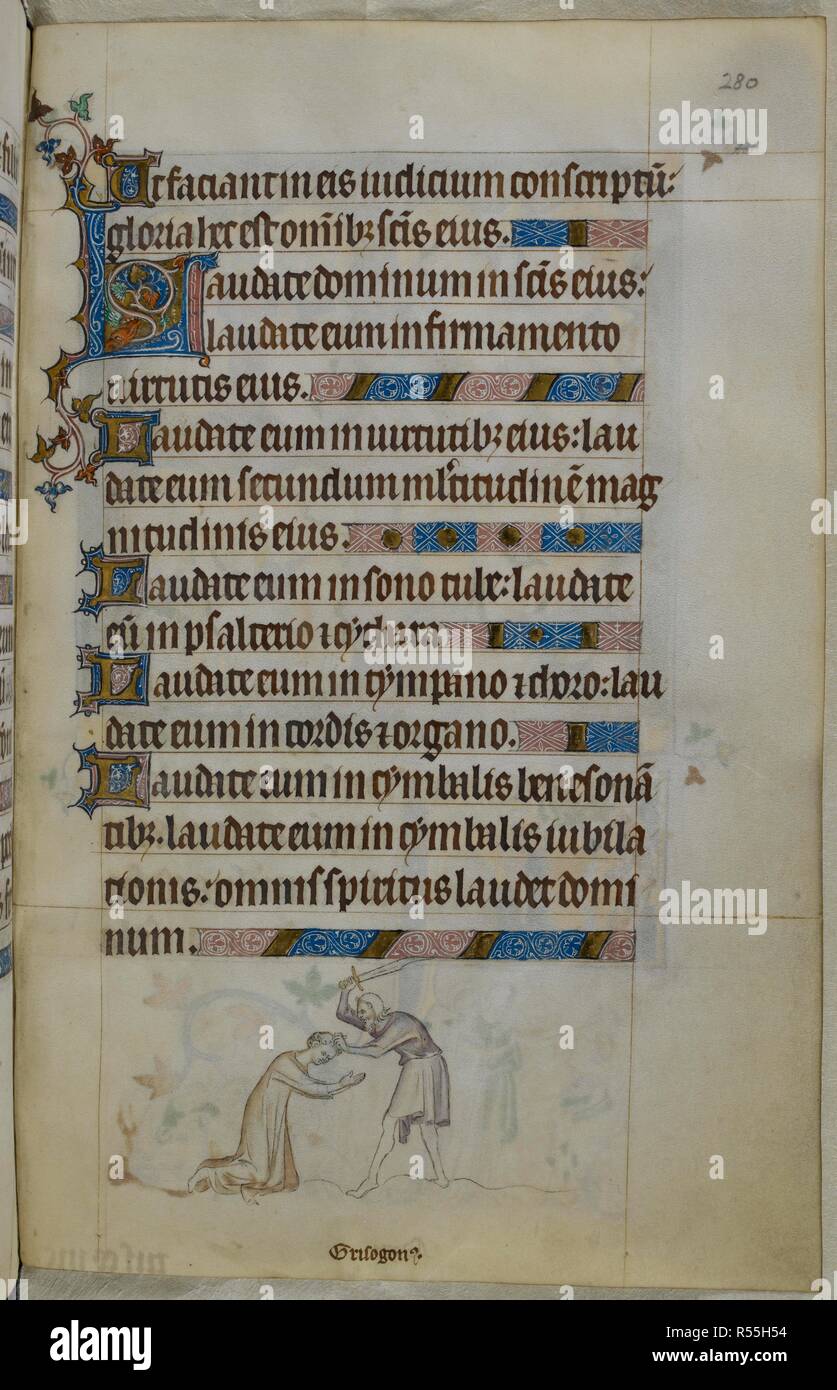 280
Ut faciant in eis iudicium conscriptū:
gloria hec est om̄ibꝫ sc̄is eius.
Laudate dominum in sc̄is eius:
laudate eum in firmamento
uirtutis eius.
Laudate eum in uirtutibꝫ eius: lau
date eum secundum ml'titudinē mag
nitudinis eius.
Laudate eum in sono tube: laudate
eū in psalterio ⁊ cythara.
Laudate eum in tympano ⁊ choro: lau
date eum in cordis ⁊ organo.
Laudate eum in cymbalis benesonā
tibꝫ. laudate eum in cymbalis iubila
tionis: omnis spiritus laudet domi
num.
Grisogonꝰ.
alamy
Image ID: R55H54
www.alamy.com